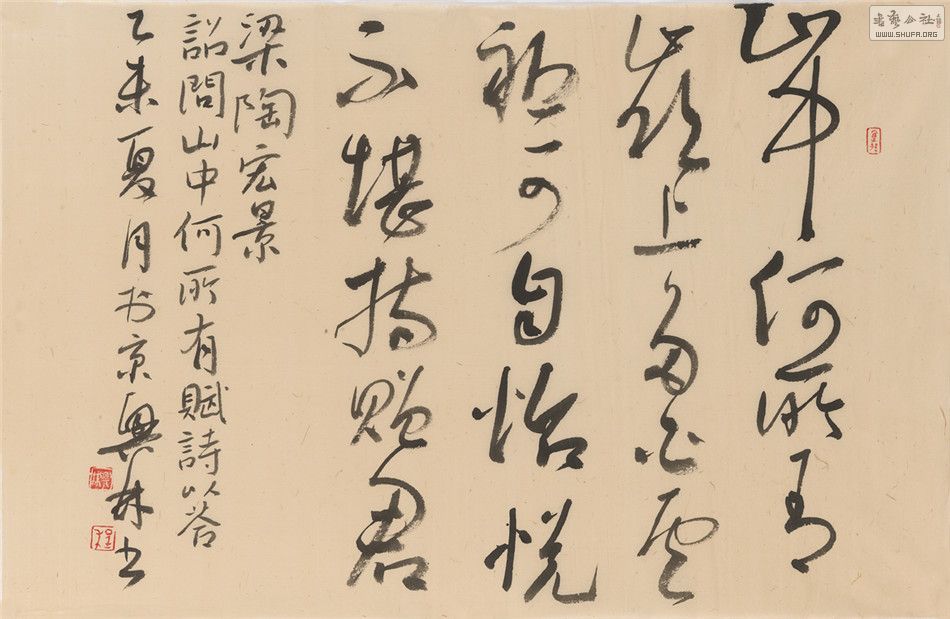 山中何所有
嶺上多白雲
祗可自怡悦
不堪持贈君
梁陶宏景
詔問山中何所有賦詩以答
乙未夏月於京興林书
書藝公社
WWW.SHUFA.ORG